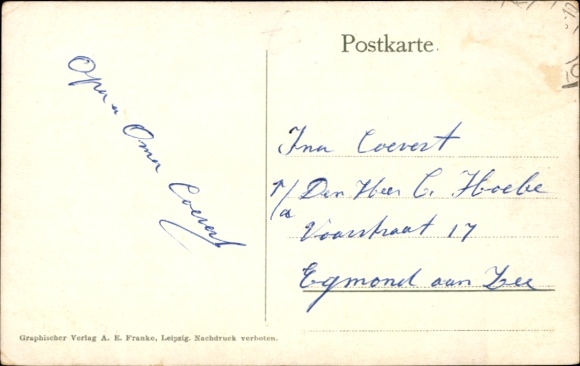 Postkarte.
Opa u Oma Coevert
Ina Coevert
p/a Den Heer C. Hoebe
Voorstraat 17
Egmond aan Zee
Graphischer Verlag A. E. Franke, Leipzig. Nachdruck verboten.